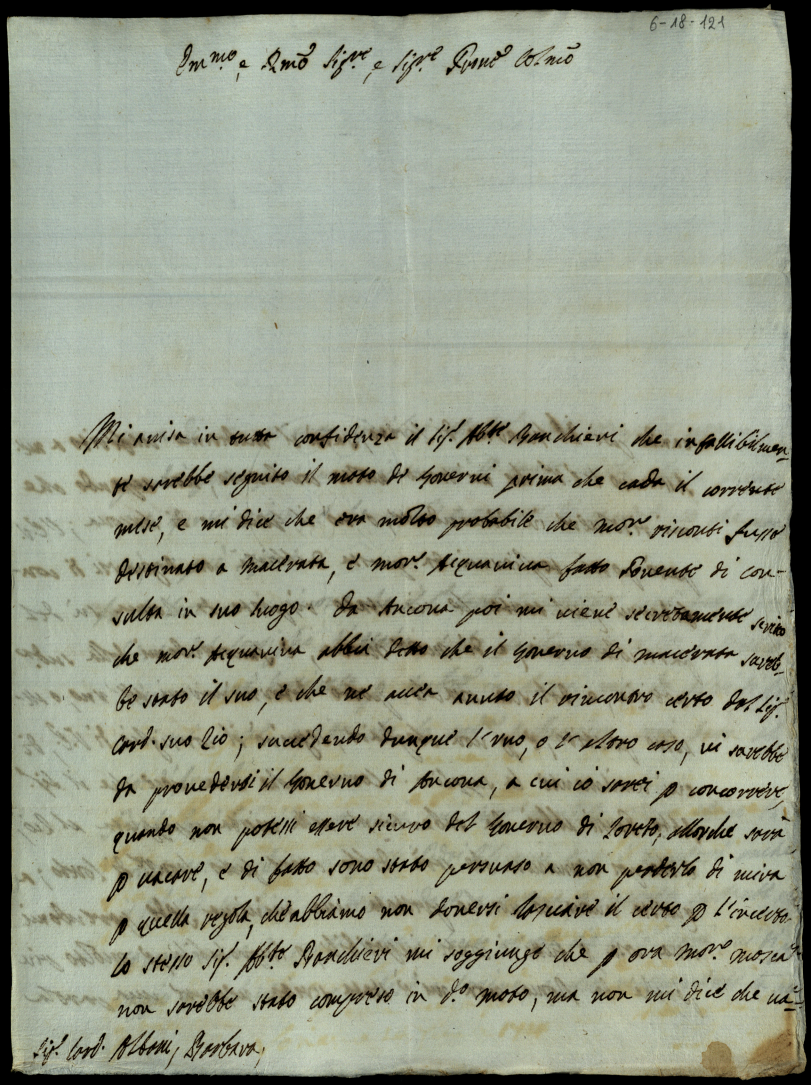 6-18-121
Emmo, e Rmo Sigre, e Sigre Prone Colmo
Mi avisa in tutta confidenza il Sigr. Abbte Banchieri che infallibilmen-
te sarebbe seguito il moto de Governi prima che cada il corrente
mese, e mi dice che era molto probabile che Monr. Visconti fusse
destinato a Macerata, e Monr. Acquaviva fatto Ponente di Con-
sulta in suo luogo. Da Ancona poi mi viene secretamente scritto
che Monr. Acquaviva abbia detto che il Governo di Macerata sareb-
be stato il suo, e che ne avea avuto il rincontro certo dal Sigr.
Card. suo Zio; succedendo dunque l'uno, o l'altro caso, vi sarebbe
da provedersi il Governo di Ancona, a cui io sarei p concorrere,
quando non potessi essere sicuro del Governo di Loreto, allorche sarà
p vacare, e di fatto sono stato persuaso a non perderlo di mira
p quella regola, che abbiamo non doversi lasciare il certo p l'incerto
lo stesso Sigr. Abbte Banchieri mi soggiunge che p ora Monr. Mosca
non sarebbe stato compreso in do moto, ma non mi dice che va-
Sigr. Card. Albani, Barbara,